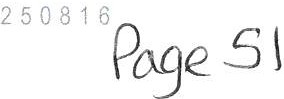 250816
Page 51